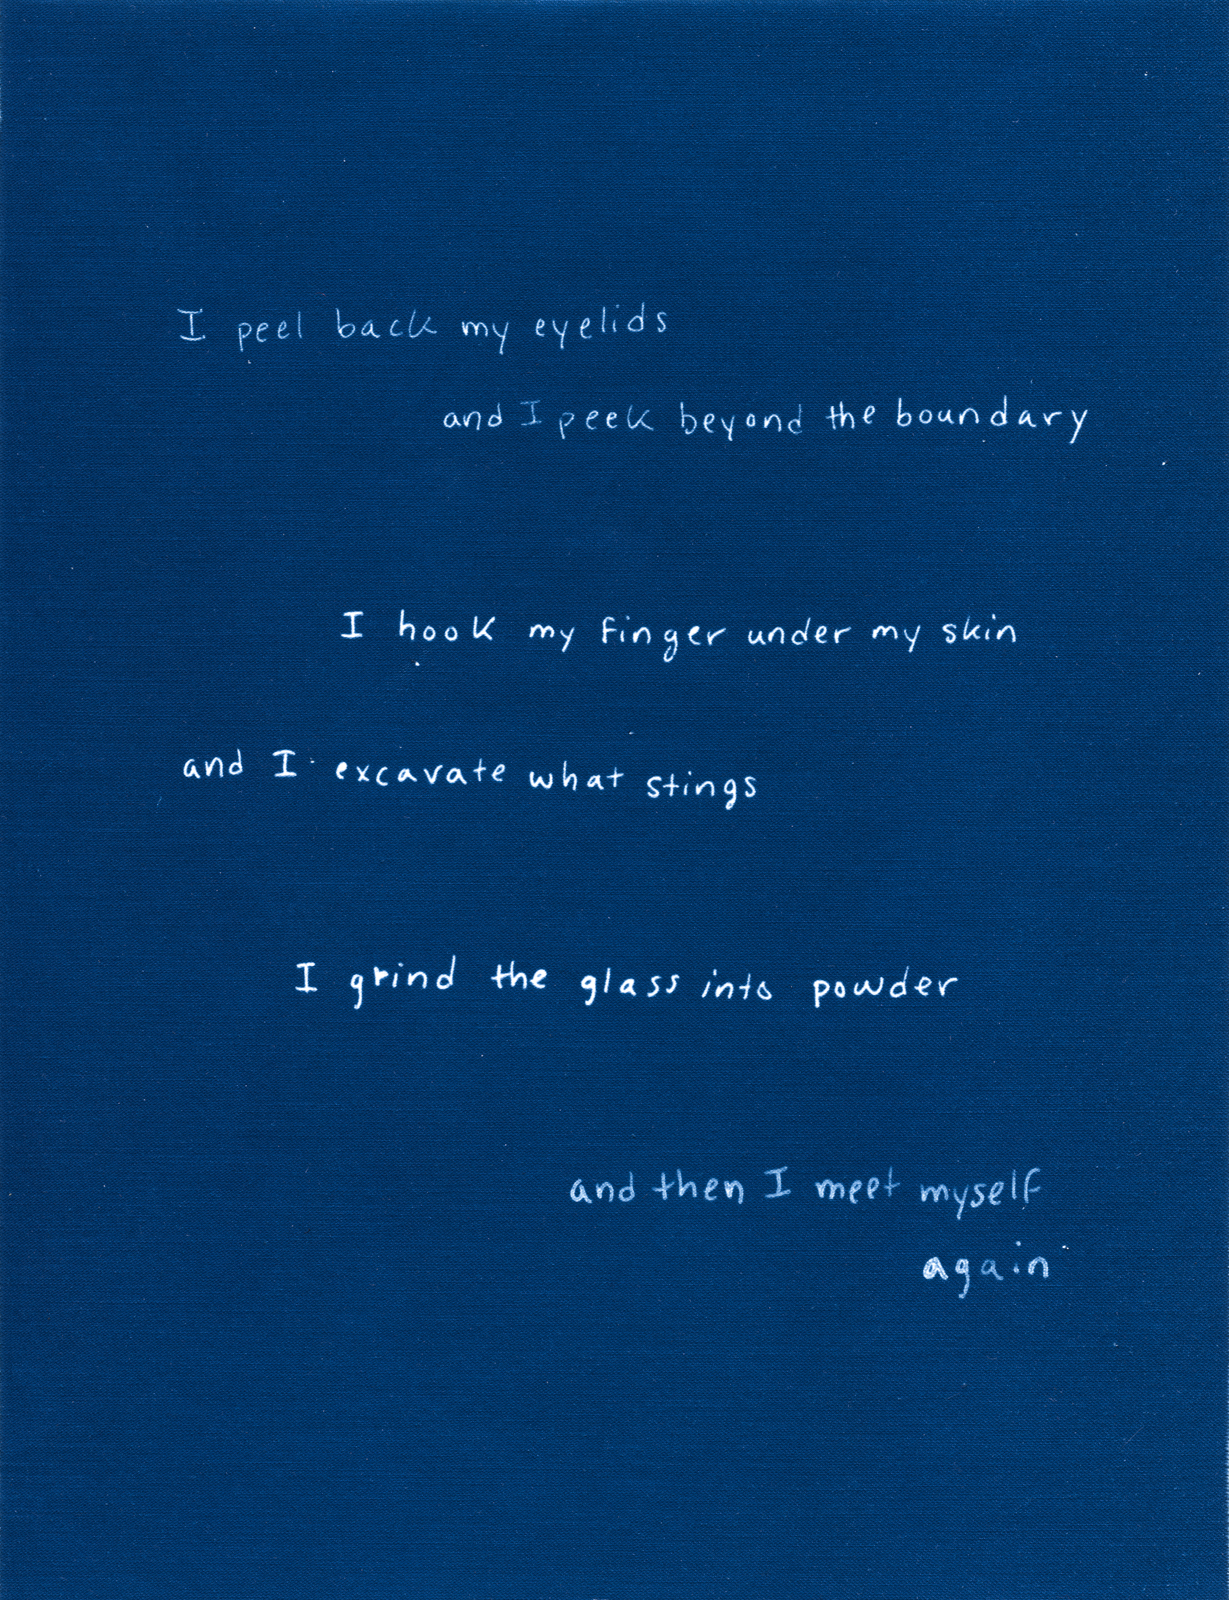 I peel back my eyelids
and I peek beyond the boundary
I hook my finger under my skin
and I excavate what stings
I grind the glass into powder
and then I meet myself
again